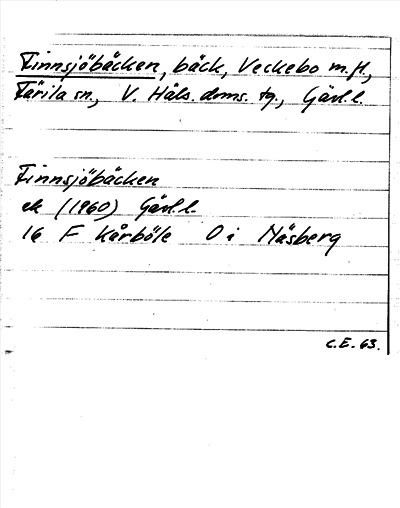 Finnsjöbäcken, bäck, Veckebo m.fl.,
Färila sn., V. Häls. doms. tg., Gävl.l.
Finnsjöbäcken
ek (1960) Gävl.l.
16 F Kårböle O i Näsberg
C.E. 63.